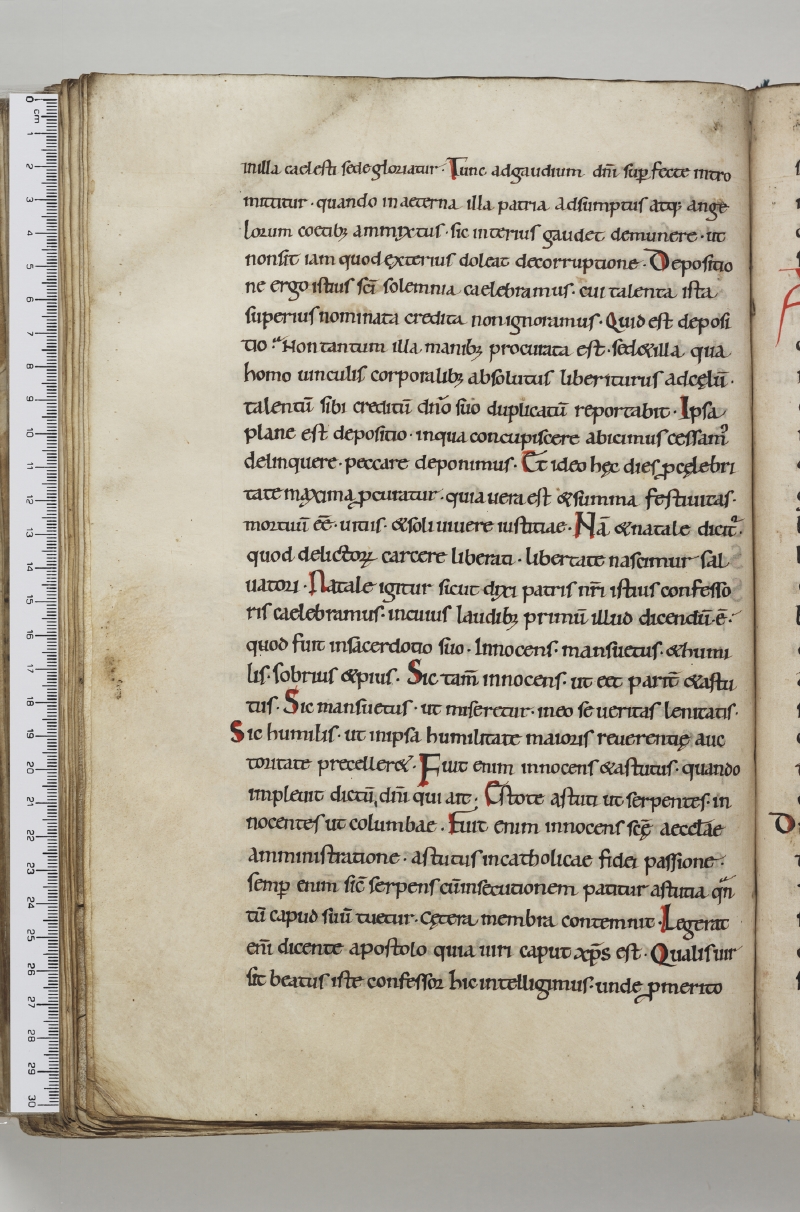 inilla caelesti sede gloriatur· Tunc adgaudium dn̄i sup̱ fecte intro
mittitur· quando inaeterna illa patria adsumptus atq; ange
lorum coetib; ammixtus· sic interius gaudet demunere· ut
nonsit iam quod exterius doleat decorruptione· Depositio
ne ergo istius sc̄i solemnia caelebramus· cui talenta ista
superius nominata credita nonignoramus· Quid est deposi
tio? Non tantum illa manib; procurata est· sed &illa qua
homo uinculis corporalib; absolutus liberiturus adcęlū·
talentū sibi creditū dn̄o suo duplicatū reportabit· Ipsa
plane est depositio· inqua concupiscere abicimus cessam̄
delinquere· peccare deponimus· Et ideo hęc dies p̱cęlebri
tate maxima p̱curatur· quia uera est &summa festiuitas·
mortuū eē· uitiis· &soli uiuere iustitiae· Nā &natale dicit̄·
quod delictoꝝ carcere liberati· libertate nascimur sal
uatori· Natale igitur sicut dixi patris nr̄i istius confesso
ris caelebramus· incuius laudib; primū illud dicendū·ē·
quod fuit insacerdotio suo· Innocens· mansuetus· &humi
lis· sobrius &pius· Sic tam̄ innocens· ut eēt parit̄ &astu
tus· Sic mansuetus· ut miseretur· ineo se ueritas lenitatis·
Sic humilis· ut inipsa humilitate maioris reuerentię auc
toritate preceller&· Fuit enim innocens &astutus· quando
impleuit dictū dn̄i qui ait; Estote astuti ut serpentes· in
nocentes ut columbae· Fuit enim innocens scę̄ aeccl̄ae
amministratione· astutus incatholicae fidei passione·
semp̱ enim sic̄ serpens cūinsecutionem patitur astutia qn̄
tū capud suū tuetur· cętera membra contemnit· Legerat
em̄ dicente apostolo quia uiri caput xp̄s est· Qualis uir
sit beatus iste confessor hic intelligimus· unde p̱merito